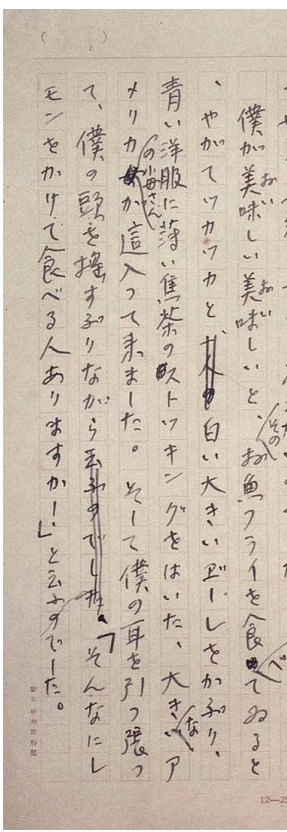 僕が美味しい美味しいと、そのお魚フライを食べてゐると
、やがてツカツカと白い大きいボールをかぶり、
青い洋服に薄い焦茶のストッキングをはいた、大きなア
メリカの小母さんが這入って来ました。そして僕の耳を引っ張っ
て、僕の頭を揺すぶりながら「そんなにレ
モンをかけて食べる人ありますか!」と云ふのでした。
12—25